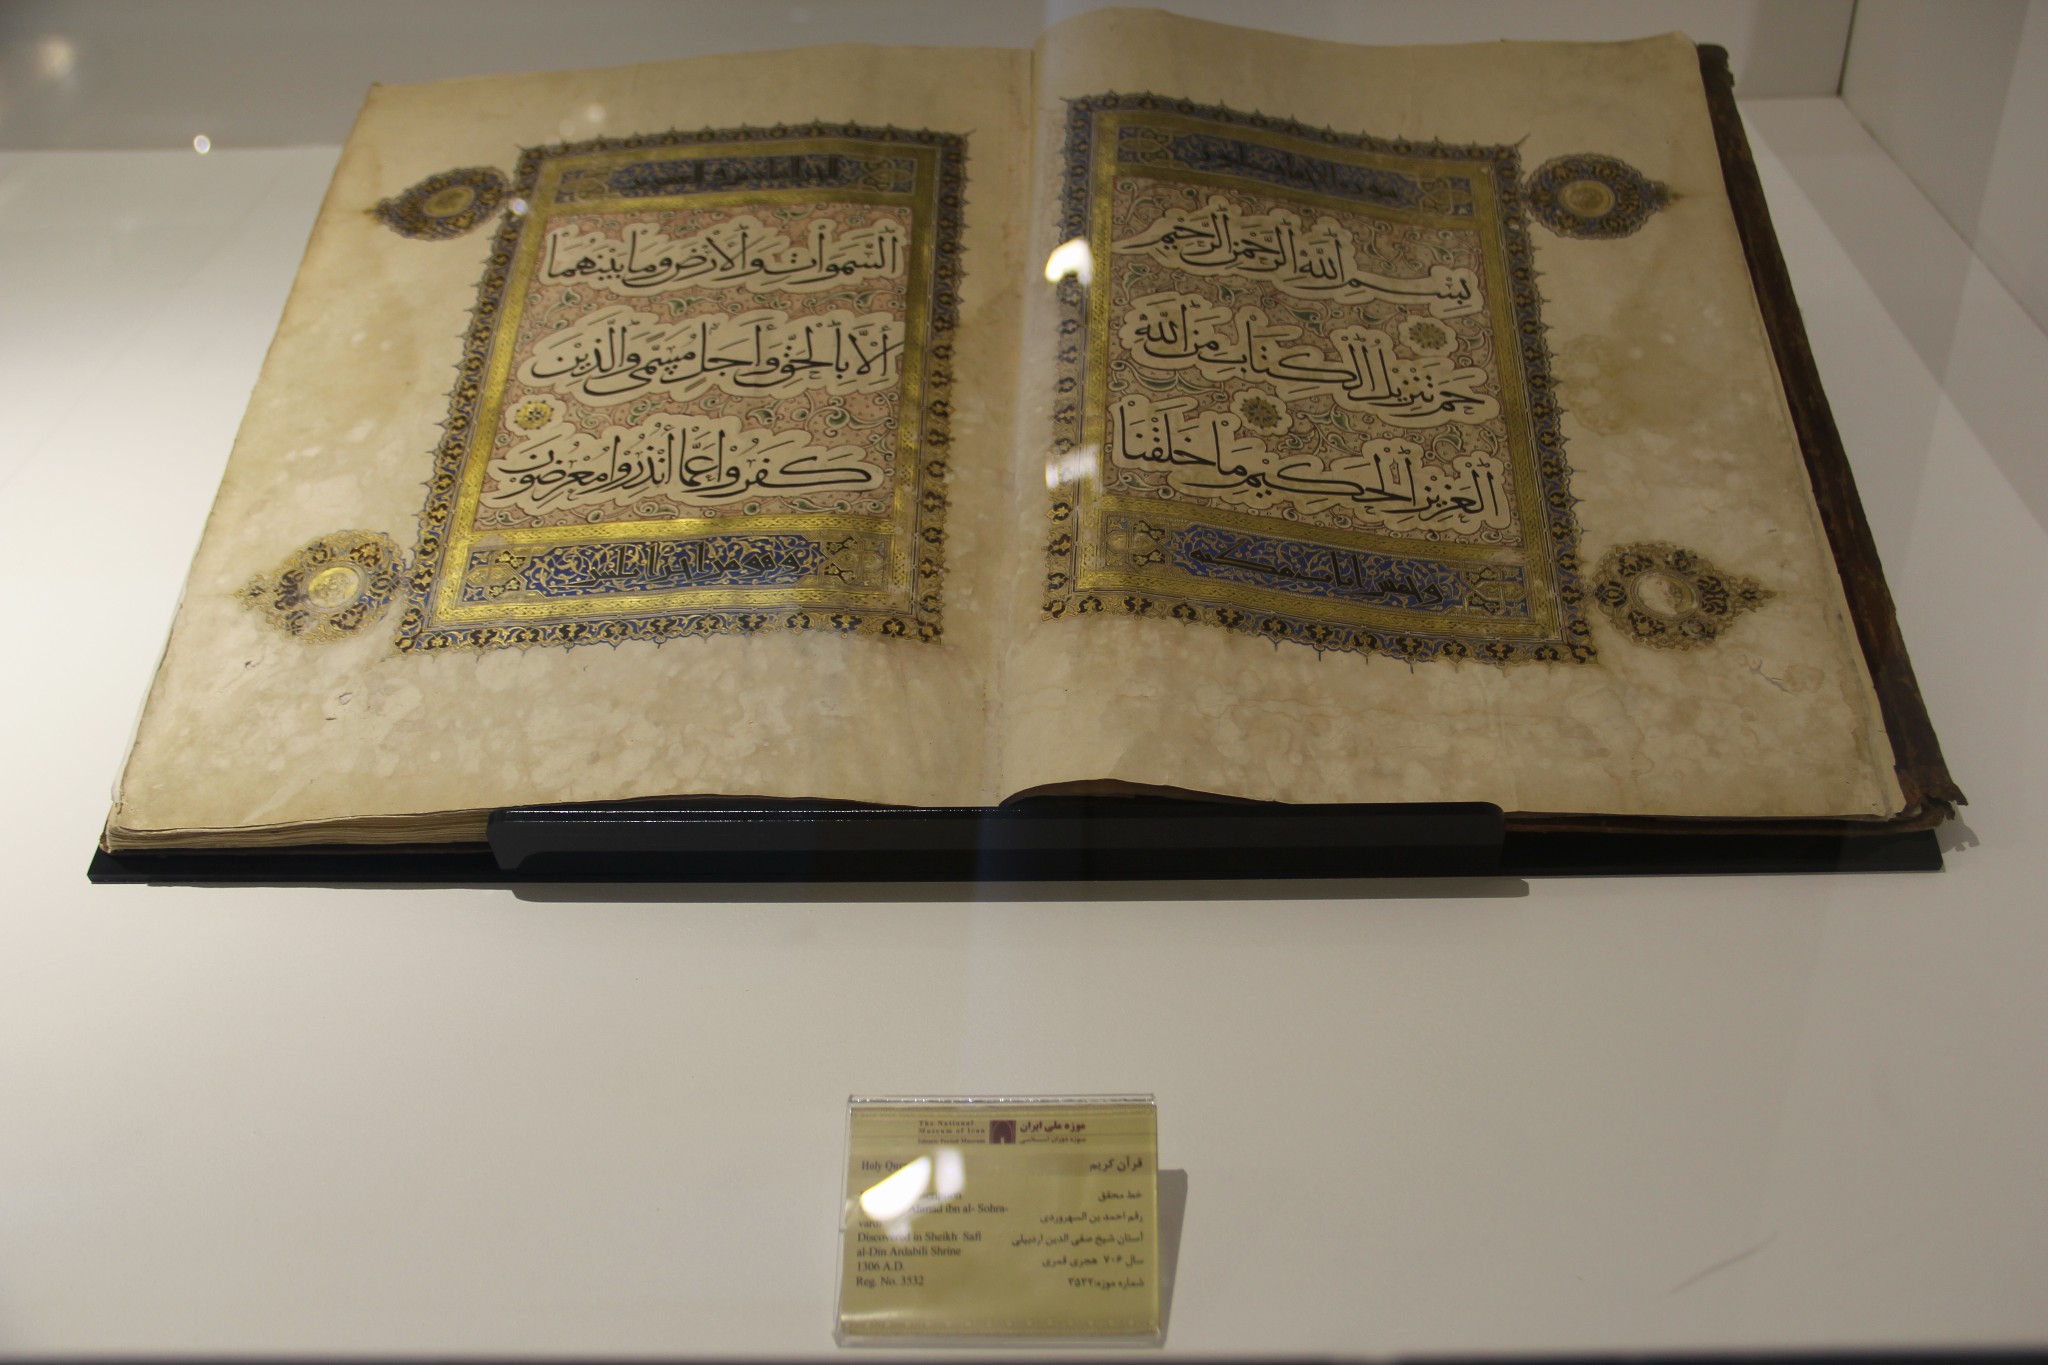 بسم الله الرحمن الرحيم
حم تنزيل الكتاب من الله
العزيز الحكيم ما خلقنا
السموات والأرض وما بينهما
ألا بالحق وأجل مسمى والذين
كفروا عما أنذروا معرضون
The National
Museum of Iran
Islamic Period Museum
موزه ملی ایران
موزه دوران اسلامی
Holy
قرآن کریم
خط محقق
Ahmad ibn al- Sohra-
رقم احمد بن السهروردی
Discovered in Sheikh Safi
al-Din Ardabili Shrine
آستان شیخ صفی الدین اردبیلی
1306 A.D.
سال ۷۰۶ هجری قمری
Reg. No. 3532
شماره موزه:۳۵۳۲